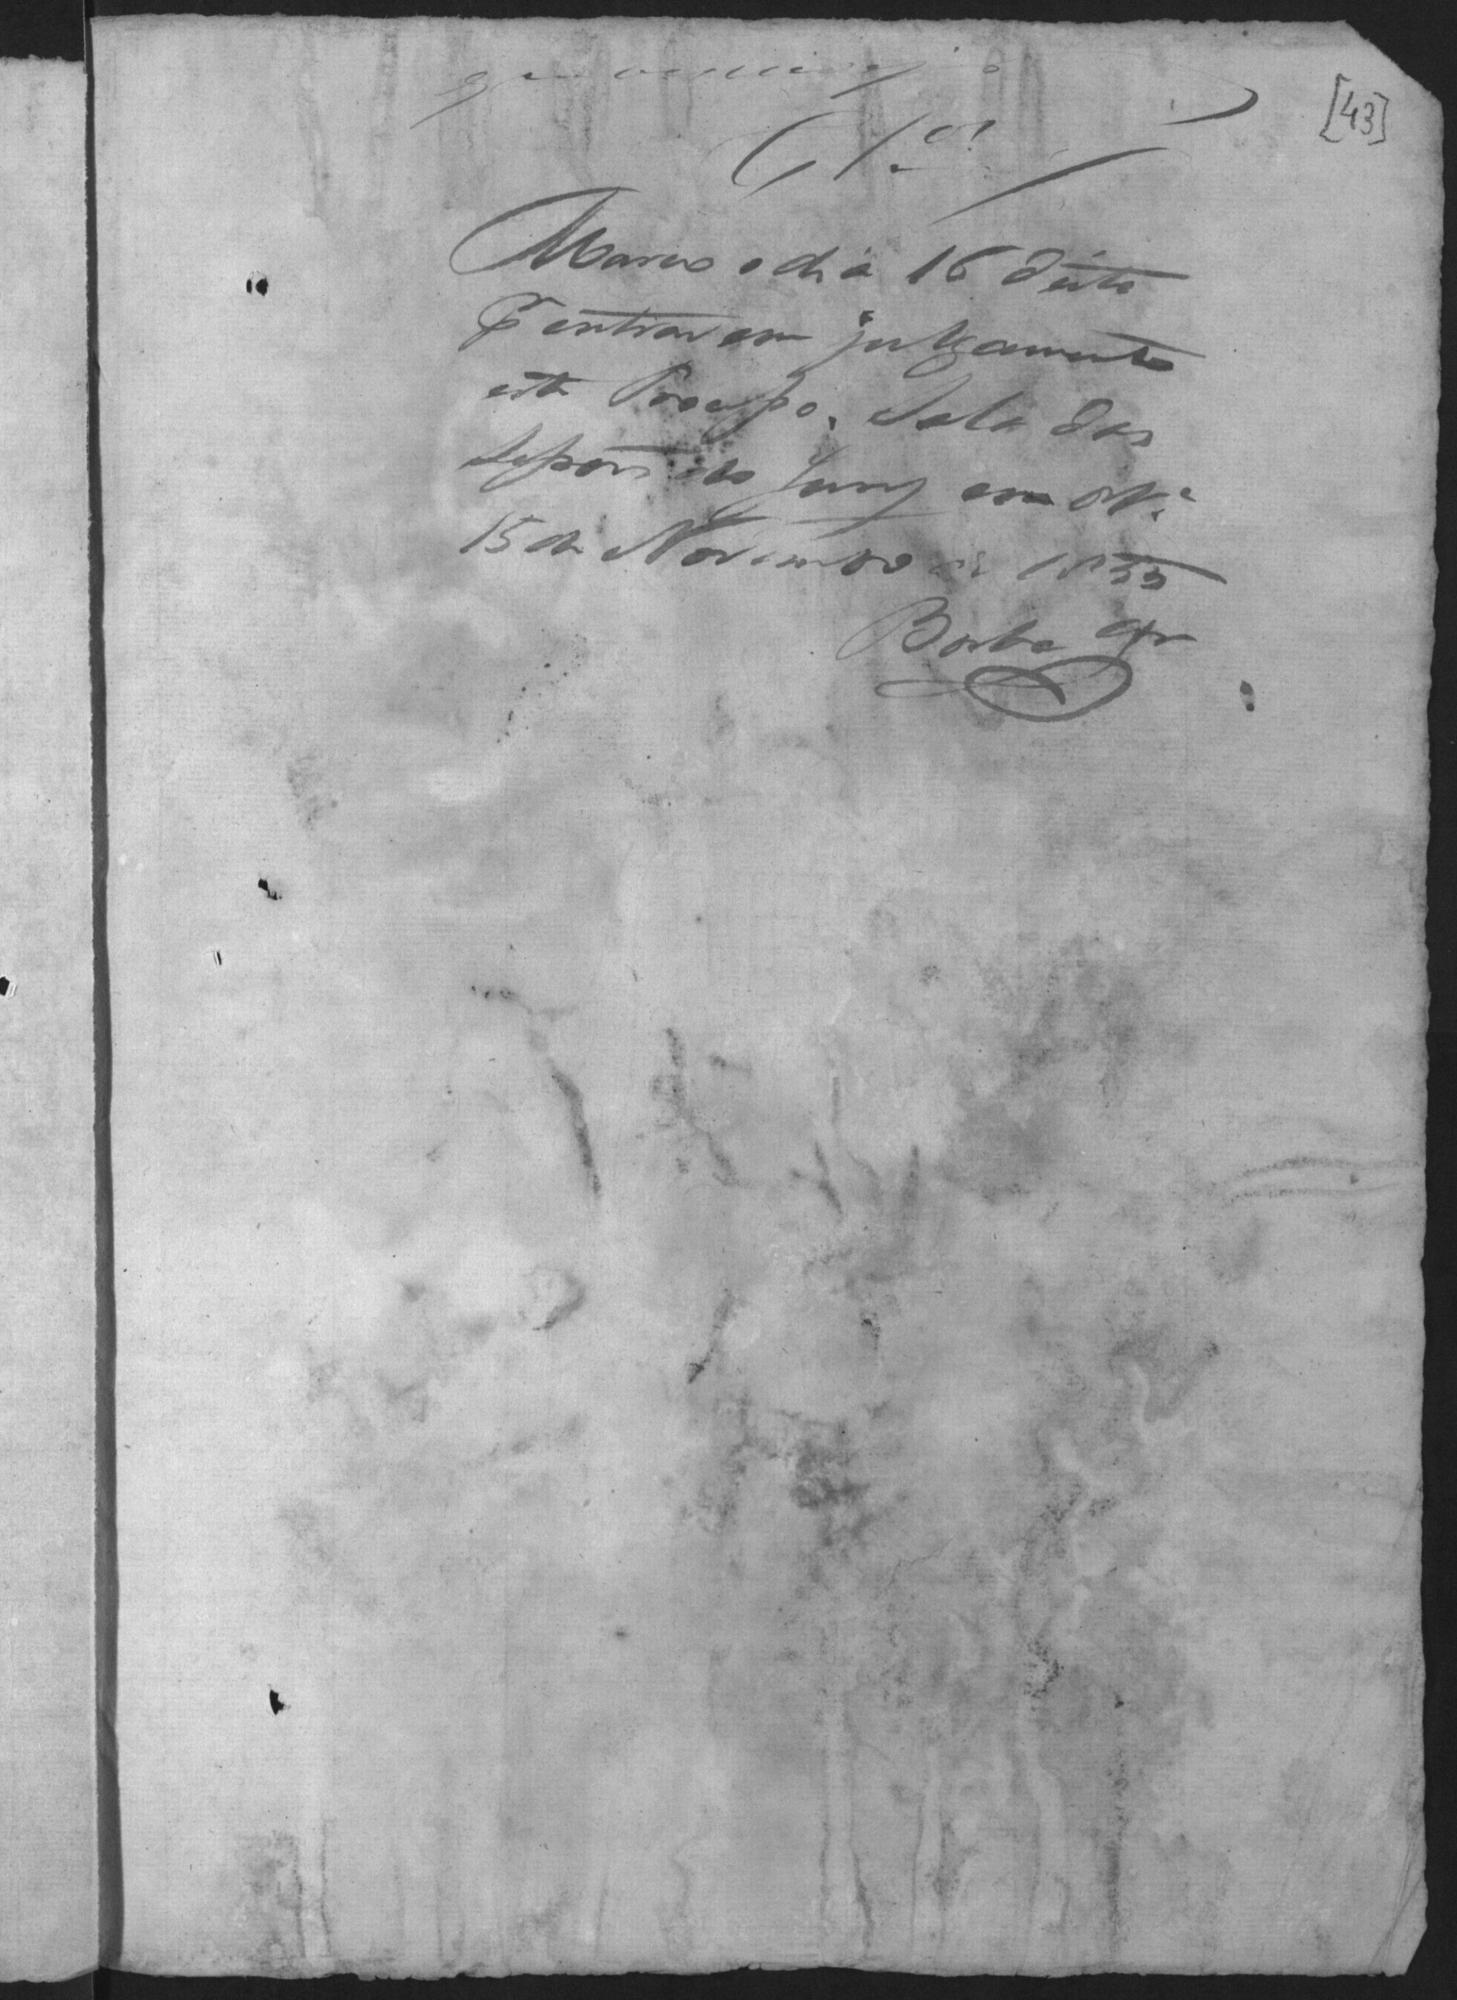 [43]
Cl.os
Marco o dia 16 deste
pa entrar em julgamento
este Processo. Sala das
Sessoens do Jury em
15 de Novembro de 1855
Borba Jor